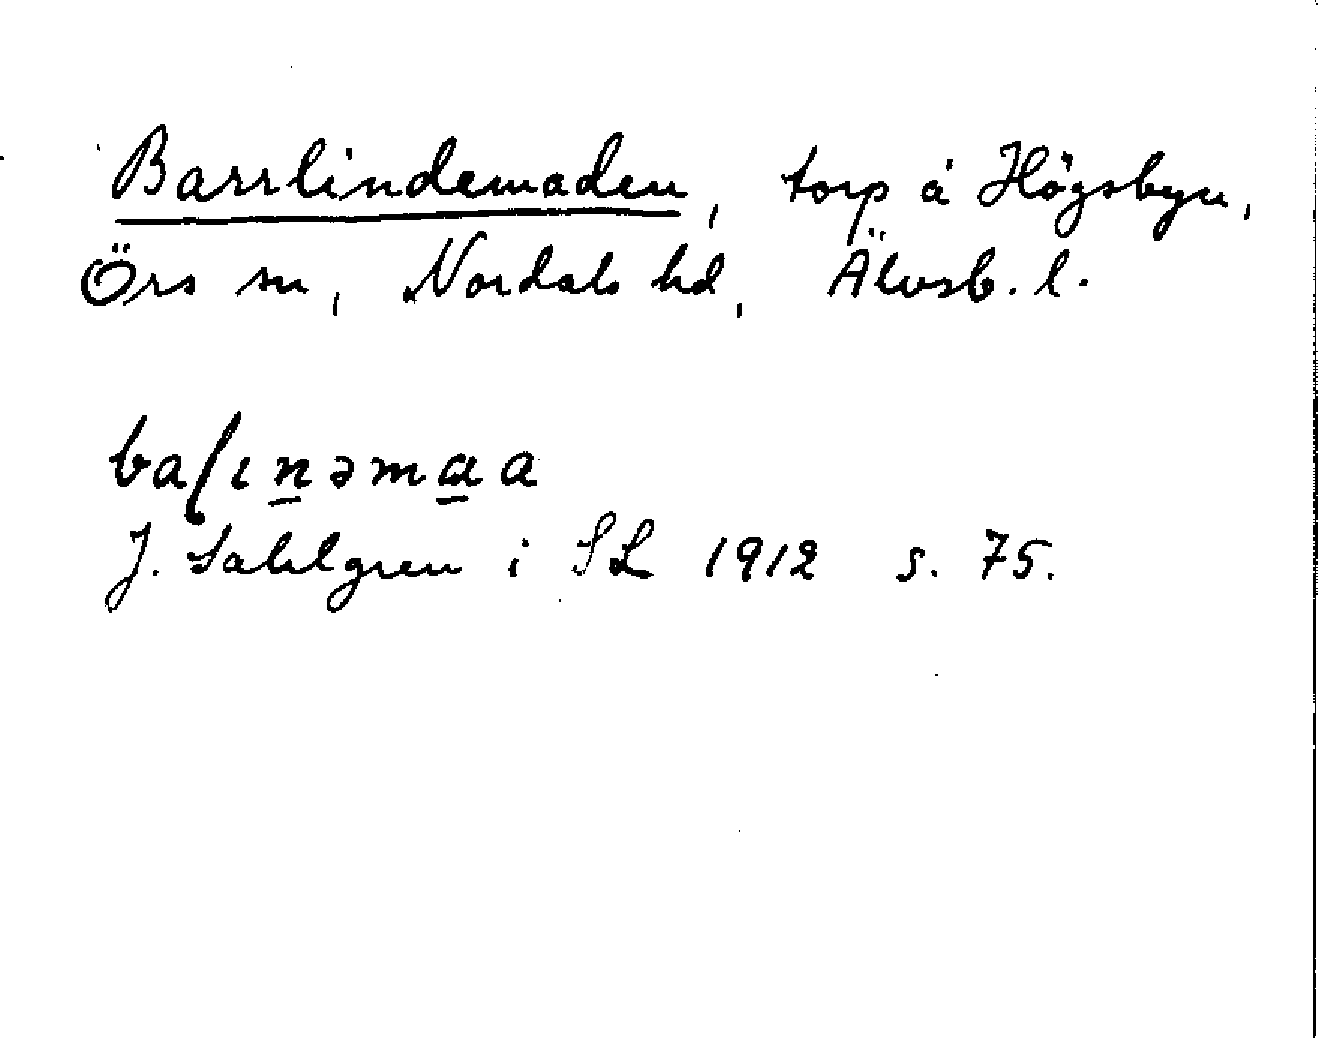 Barrlindemaden, torp å Högsbyn,
Örs sn, Nordals hd, Älvsb. l.
baſınəmaa
J. Sahlgren i SL 1912 s. 75.